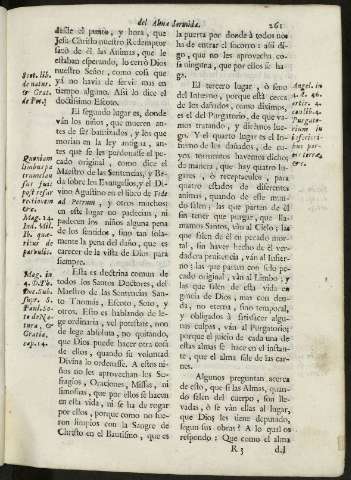 del Alma Servida. 261
desde el punto, y hora, que
Jesu-Christo nuestro Redemptor
sacò de èl las Animas, que le
estaban esperando, lo cerrò Dios
nuestro Señor, como cosa que
ya no havia de servir mas en
tiempo alguno. Assi lo dice el
doctissimo Escoto.
El segundo lugar es, donde
vàn los niños, que mueren an-
tes de ser bautizados, y los que
morian en la ley antigua, an-
tes que se les perdonasse el pe-
cado original, como dice el
Maestro de las Sentencias, y Be-
da sobre los Evangelios, y el Di-
vino Agustino en el suco de Fide
ad Petrum, y otros muchos:
en este lugar no padecian, ni
padecen los niños alguna pena
de los sentidos, sino tan sola-
mente la pena del daño, que es
carecer de la vista de Dios para
siempre.
Esta es doctrina comun de
todos los Santos Doctores, del
Maestro de las Sentencias San-
to Thomàs, Escoto, Soto, y
otros. Esto es hablando de le-
ge ordinaria, vel potestate, non
de lege absoluta, no quitando,
que Dios puede hacer otra cosa
de ellos, quando su voluntad
Divina lo ordenasse. A estos ni-
ños no les aprovechan los Su-
fragios, Oraciones, Missas, ni
limosnas, que por ellos se hacen
en esta vida, ni se ha de rogar
por ellos, porque como no fue-
ron limpios con la Sangre de
Christo en el Bautismo, que es
Scot. lib.
de natur.
& Grat.
Quoniam
Mag. 14.
parvulis.
Mag. in
4. D. Th.
Soto de Na-
tura, &
Gratia,
cap. 14.
la puerta por donde à todos nos
ha de entrar el socorro: assi di-
go, que no les aprovecha co-
sa ninguna, que por ellos se ha-
ga.
El tercero lugar, ò seno
del Infierno, porque està cerca
de los dañados, como diximos,
es el del Purgatorio, de que va-
mos tratando, y diximos lue-
go. Y el quarto lugar es el In-
fierno de los dañados, de cu-
yos tormentos havemos dichos
de manera, que hay quatro lu-
gares, ò receptaculos, para
quatro estados de diferentes
animas, quando de este mun-
do salen; las que parten de èl
sin tener que purgar, que lla-
mamos Santos, vàn al Cielo; las
que salen de èl en pecado mor-
tal, sin haver hecho de èl ver-
dadera penitencia, vàn al Infier-
no; las que partan con solo pe-
cado original, vàn al Limbo; y
las que salen de esta vida en
gracia de Dios, mas con deu-
da, no eterna, sino temporal,
y obligados à satisfacer algu-
nas culpas, vàn al Purgatorio;
porque el juicio de cada una de
estas almas se hace en el instan-
te, que el alma sale de las car-
nes.
Algunos preguntan acerca
de esto, que si las Almas, quan-
do salen del cuerpo, son lle-
vadas, ò se vàn ellas al lugar,
que Dios les tiene deputado,
segun sus obras? A lo qual os
respondo: Que como el alma
Angel. in
Purgato-
rium
R 3 del